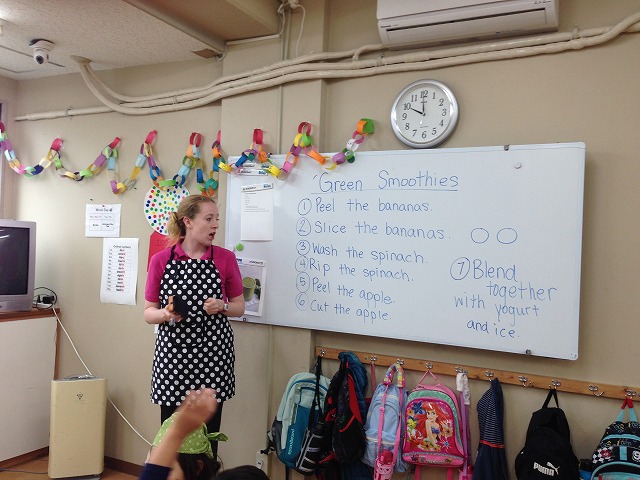 Green Smoothies
① Peel the bananas.
② Slice the bananas.
③ Wash the spinach.
④ Rip the spinach.
⑤ Peel the apple.
⑥ Cut the apple.
⑦ Blend
together
with yogurt
and ice.
PUMA